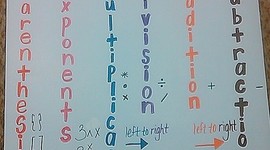 arenthesi
xponents
ultiplica
ivision
ddition
ubtractio
{ }
3^x
left to right
left to right
÷
/
+
-